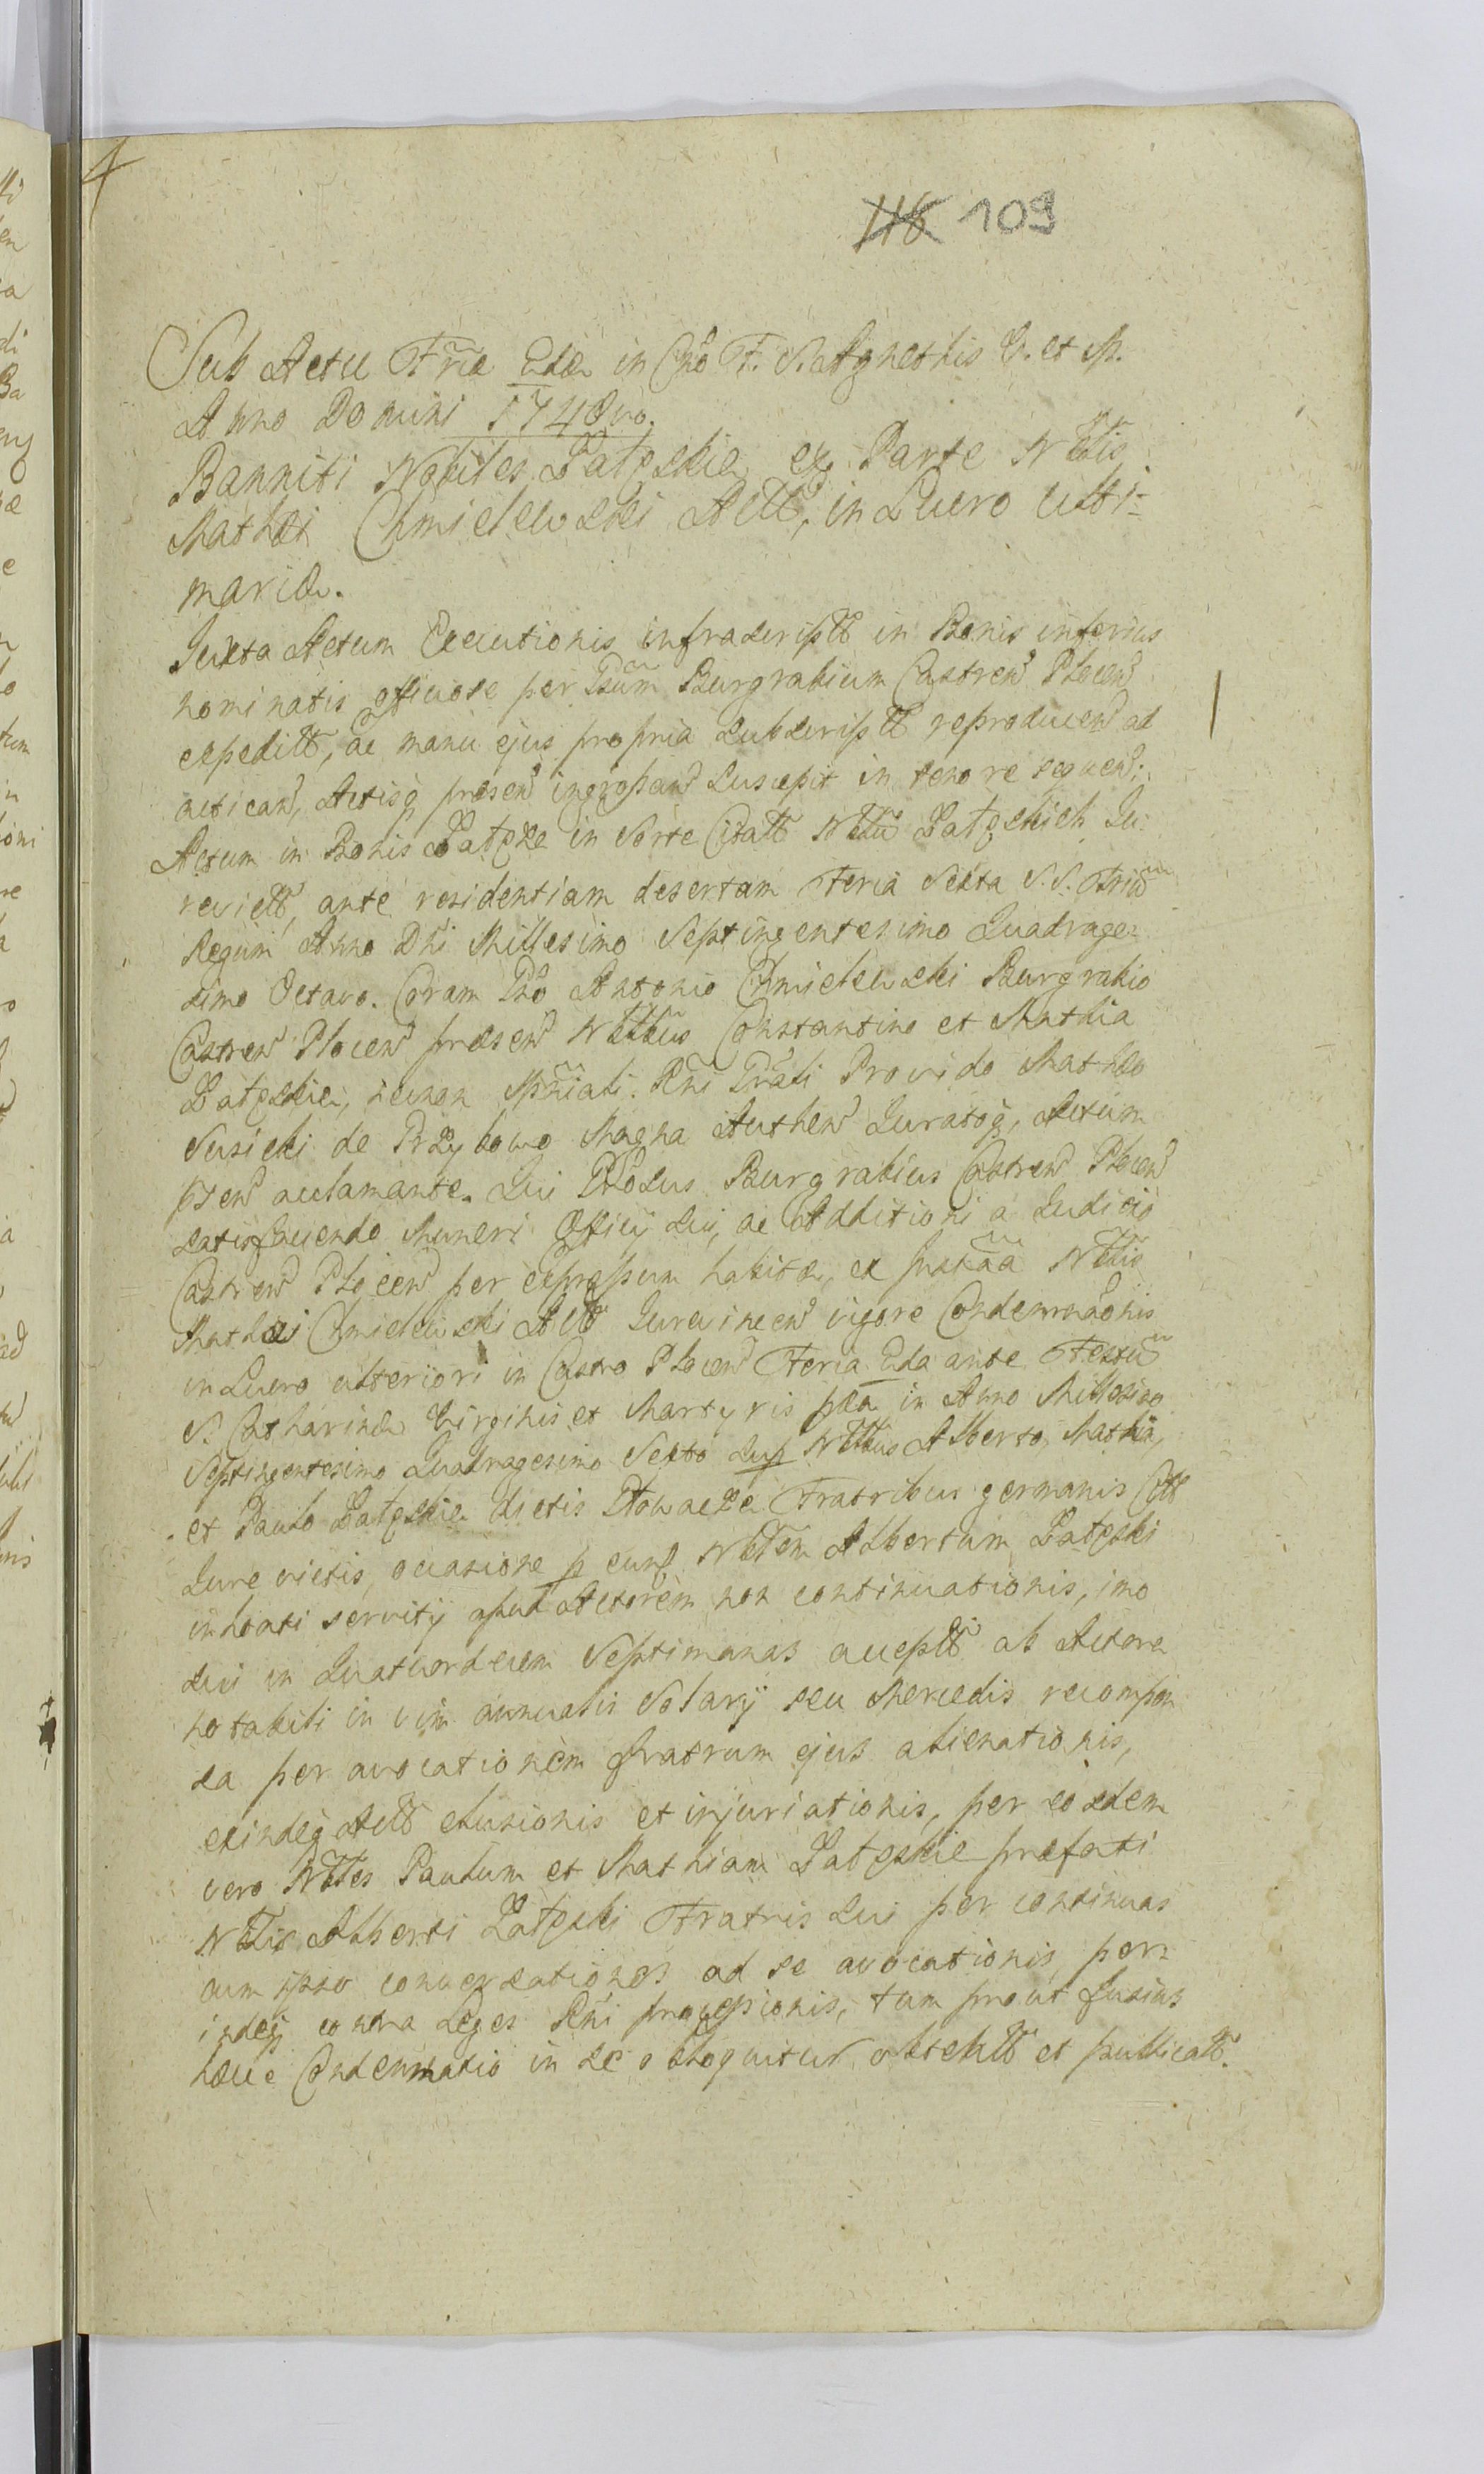 4
116 109
Sub Actu Friæ 2dæ in Cño F. S. Agnethis V. et M.
Anno Domini 1748vo.
Banniti Nobiles Łątczskie ex Parte Nblis
Mathæi Chmielewski Actt, in Lucro ulti-
mariæ.
Juxta Actum Executionis infrascriptt in Bonis inferius
nominatis officiose per Dñum Burgrabium Castren Plocen
expeditt, ac manu ejus propria subscriptt reproducen ad
acticand, Actisq præsen ingrossand suscepit in tenore sequen;
Actum in Bonis in Sorte Citatt Nbliũ Ju-
re victt, ante residentiam desertam Feria Sexta S. S. Triũ
Regum Anno Dñi Millesimo Septingentesimo Quadrage-
simo Octavo. Coram Dño Antonio Chmielewski Burgrabio
Castren Plocen præsen Nblibus Constantino et Mathia
necnon Mñiali Rñi Grãli Provido Mathæo
Susicki de Przybowo Magna Authen Juratoq, Actum
pten acclamante. Qui Dnosus Burgrabius Castren Plocen
satisfaciendo Muneri Officij sui, ac Additioni a Judicio
Castren Plocen per expressum habitæ, ex Instãa Nblis
Mathæi Chmielewski Actt Jurevincen vigore Condemnãonis
in Lucro ulteriori in Castro Plocen Feria 2da ante Festũ
S. Catharinæ Virginis et Martyris pxa in Anno Millesimo
Septingentesimo Quadragesimo Sexto sup Nblibus Alberto, Mathia,
et Paulo dictis Fratribus germanis Citt
Jure victis, occasione p eund Nblem Albertum
inchoati servitij apud Actorem non continuationis, imo
sui in Quatuordecem Septimanas acceptt ab Actore
notabili in vim annualis Solarij seu Mercedis recompen
sa per avocationem fratrum ejus alienationis,
exindeq Actt elusionis et injuriationis, per eosdem
vero Nbles Paulum et Mathiam præfati
Nblis Alberti Fratris sui per continuas
cum ipso conversationes ad se avocationis, per-
indeq contra Leges Rñi processionis, tum prout fusius
hæcce Condemnatio in se obloquitur obtentt et publicatt.